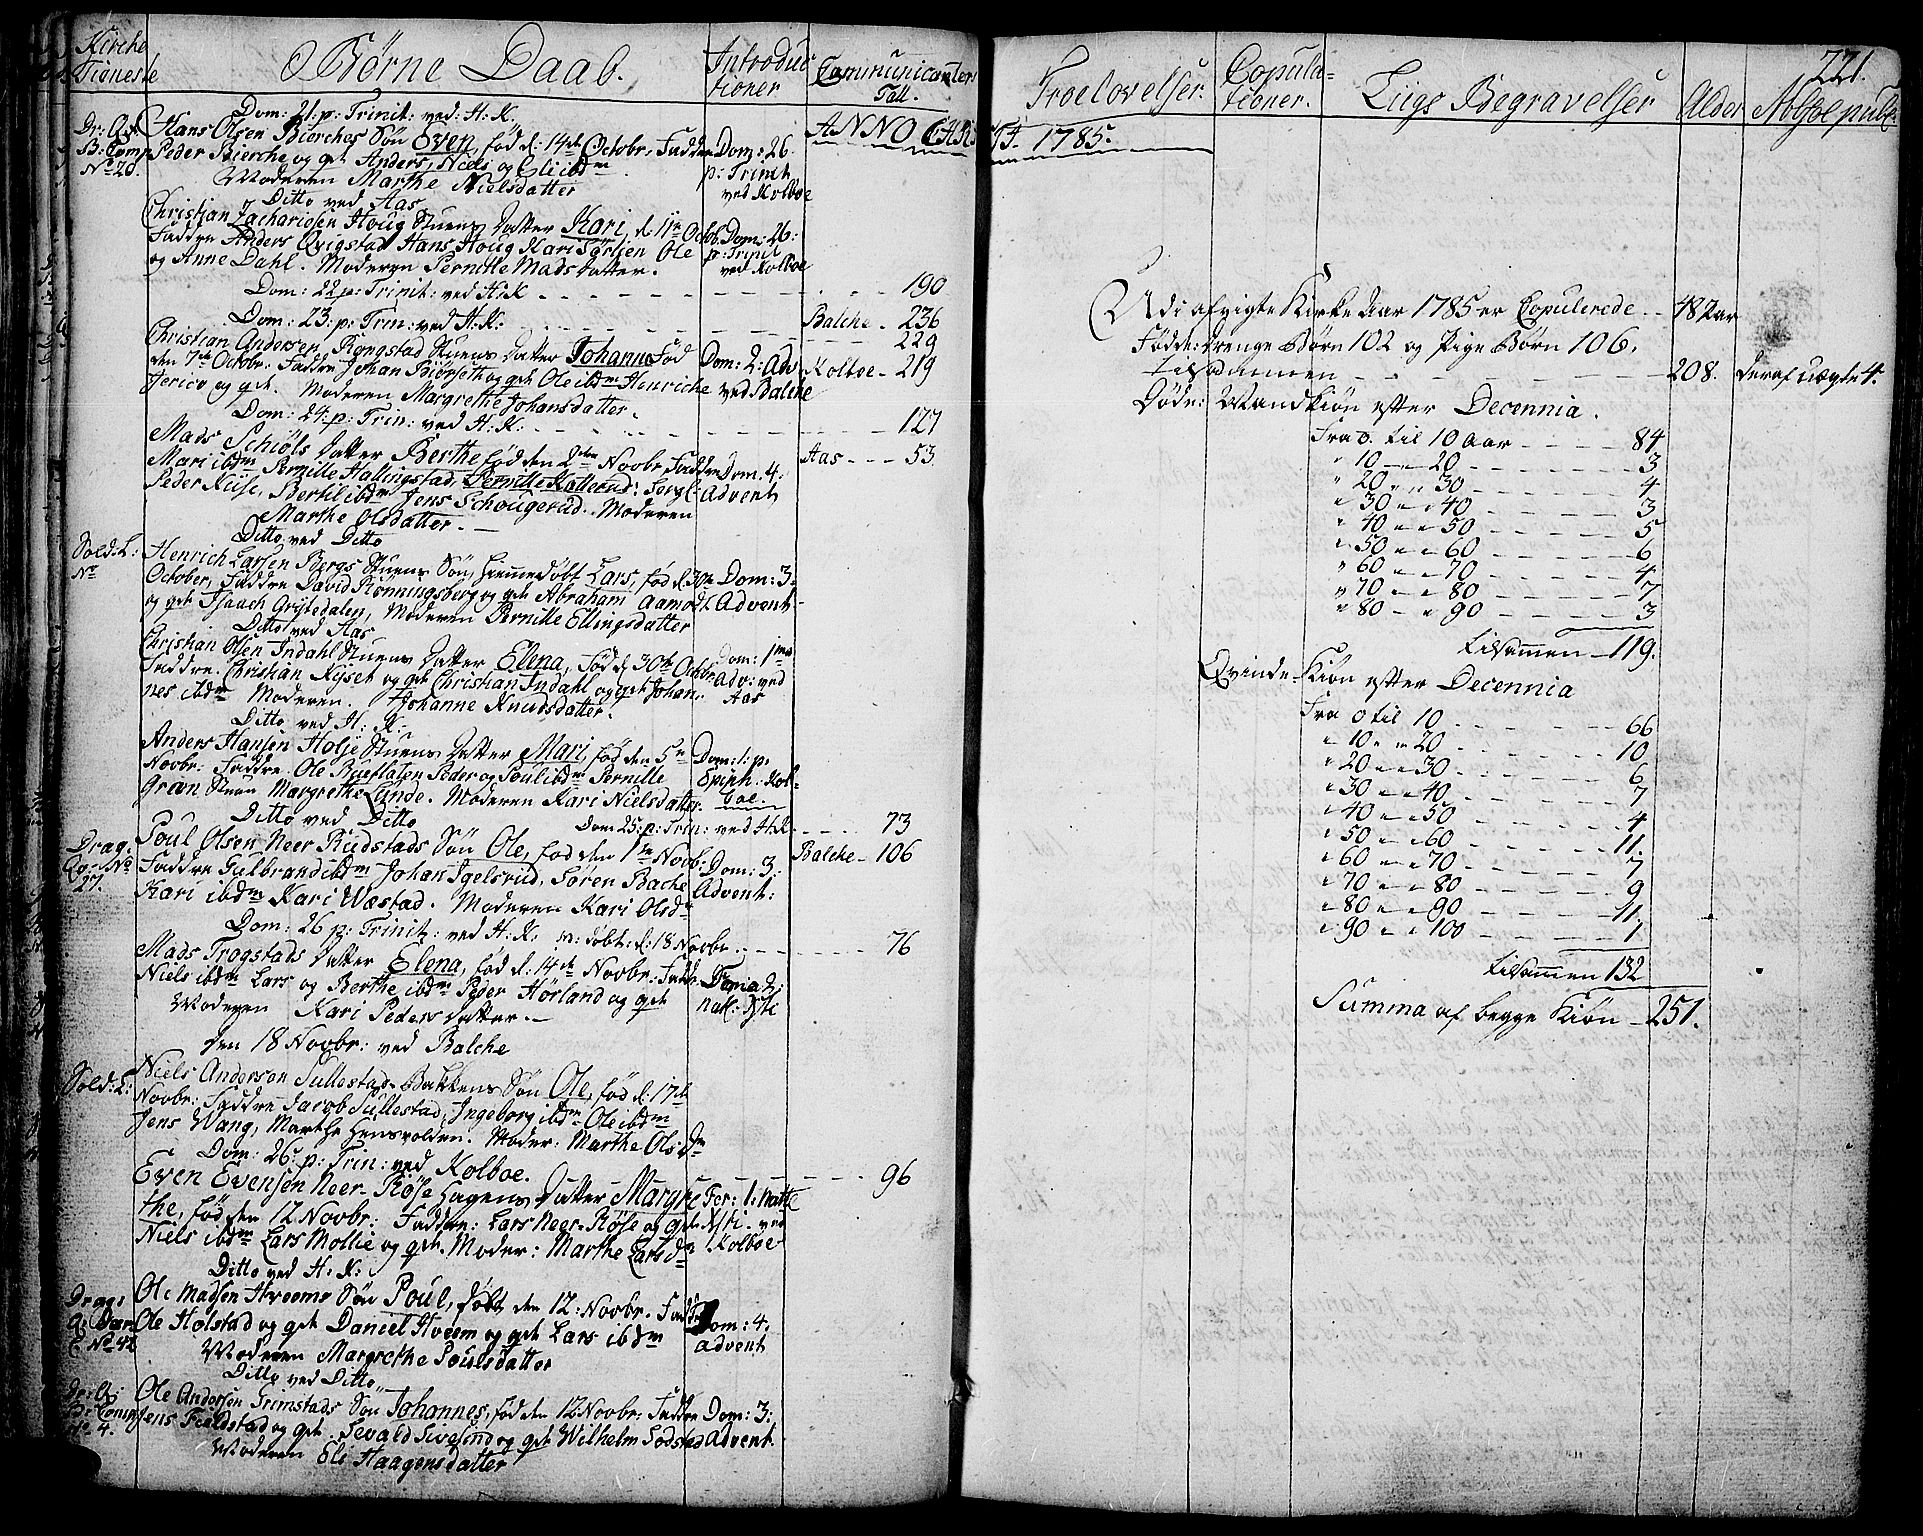 Kirche
Tieneste
Børne Daab.
Introduc
tioner
Communicanter
Tall.
Dom: 21. p: Trinit: ved H: K.
ANNO CHRI
Hans Olsen Bierches Søn Even, fød d: 14de Octobr. Faddre
Peder Bierche og gst Anders, Niels og Eli ibdm
Moderen Marthe Nielsdatter
B: Comp
No 20.
Dom: 26.
p: Trinit
ved Kolboe
Ditto ved Aas
Christian Zachariesen Houg Stuens Datter Kari, d. 11te Octb.
Faddre Anders Qvigstad Hans Houg Kari Sørlien Ole
og Anne Dahl. Moderen Pernille Mads Datter.
Dom: 26:
p: Trinit
ved Kolboe
Dom: 22 p: Trinit: ved H: K - - - 190
Dom: 23: p: Trin: ved H: K: - - - Balche - 236
229
Christian Andersen Rongstad Stuens Datter Johanne Fød
den 7de Octobr. Faddre Johan Biørseth og gst Ole ibdm Henriche
Jerico og gst. Moderen Margrethe Johansdatter.
Dom: 2: Adv
ved Balche
Kolboe - 219
Dom: 24: p: Trin: ved H: K. - - - 127
Mads Schiøls Datter Berthe fød den 2den Novbr Faddre
Mari ibdm Pernille Hallingstad, Pernille Kollerud:
Peder Kiise, Bertil ibdm Jens Schougerud. Moderen
Marthe Olsdatter.
Dom: 4:
Advent
Aas - - - 53
Ditto ved Ditto
Sold: L:
No
Henrich Larsen Bergs Stuens Søn, hiemmedøbt Lars, fød d. 30te
October, Faddre David Rønningsberg og gst Abraham Aamodt
og gst Isaach Grytedalen, Moderen Pernille Ellingsdatter
Dom: 3
Advent
Ditto ved Aas
Christian Olsen Indahl Stuens Datter Elena, Fød d 30te Octbr
Faddre. Christian Kyset og gst Christian Indahl og gst Johan-
nes ibdm Moderen. Johanne Knudsdatter.
Dom: 1ma
Adv: ved
Aas
Ditto ved H: K:
Anders Hansen Holje Stuens Datter Mari, fød den 5te
Novbr: Faddre. Ole Rustaten Peder og Poul ibdm Pernille
Græn Stuen Margrethe Lunde. Moderen Kari Nielsdatter.
Dom: 1: p:
Epiph: Kol-
boe.
Ditto ved Ditto
Dom 25: p: Trin: ved H: K - - - 73
Balche - 106
Drag.
No
27.
Poul Olsen Neer Rudstads Søn Ole, fød den 1te Novb:
Faddre Gulbrand ibdm Johan Igelsrud, Søren Bache
Kari ibdm Kari Wæstad. Moderen Kari Olsdr
Dom: 3:
Advent:
Dom: 26 p: Trinit: ved H: K: døbt: d: 18 Novbr. - - - 76
Mads Trogstads Datter Elena, fød d: 14de Novbr: Faddr.
Niels ibdm Lars og Berthe ibdm Peder Hørland og gst
Moderen Kari Peders Datter.
Domia 2:
nat: Xsti
den 18 Novbr: ved Balche
Sold: L:
Niels Andersen Sullestads Bakkens Søn Ole, fød d: 17de
Novbr: Faddre Jacob Sullestad, Ingeborg ibdm Ole ibdm
Jens Wang, Marthe Hensvolden. Moder: Marthe Ols Dr
Dom: 26: p: Trin: ved Kolboe.
- - - 96
Even Evensen Neer-Røse Hagens Datter Margre
the, fød den 12 Novbr: Faddre: Lars Neer-Røse og gst
Niels ibdm Lars Mollie og gst. Moder: Marthe Lars Dr
Fer: 1: Natte
Xsti. ved
Kolboe
Ditto ved H: K:
Drag:
No 42
Ole Madsen Hveems Søn Poul, døbt den 12: Novbr. Fadd
Ole Holstad og gst Daniel Hveem og gst Lars ibdm
Moderen Margrethe Poulsdatter
Dom: 4.
Advent
Ditto ved Ditto
B: Comp
No 4.
Ole Andersen Grimstads Søn Johannes, fød den 12 Novbr: Faddre
Jens Fieldstad og gst. Sevald Sivesind og gst Wilhelm Sodsted
Moderen Eli Haagensdatter
Dom: 3:
Advent.
221.
Troelovelser.
Copula=
tioner.
Liigs Begravelser
Alder
STI. 1785.
Udi afvigte Kirke Aar 1785 er Copulerede - - 48 Par
Fødde: Drenge Børn 102 og Pige Børn 106.
tilsammen - - - 208. Deraf uægte 4.
Døde: Mandkiøn efter Decennia.
Fra 0. til 10 Aar - - - - 84
" 10 - " 20 - - - - 3
" 20 " " 30 - - - - 4
" 30 " " 40 - - - - 3
" 40 " " 50 - - - - 5
" 50 " " 60 - - - - 6
" 60 " " 70 - - - - 4
" 70 " " 80 - - - - 7
" 80 - " 90 - - - - 3
tilsammen - 119.
Qvinde-Kiøn efter Decennia
Fra 0 til 10 - - - - 66
" 10 " " 20 - - - - 10
" 20 " " 30 - - - - 6
" 30 " " 40 - - - - 7
" 40 " " 50 - - - - 4
" 50 " " 60 - - - - 11.
" 60 " " 70 - - - - 7
" 70 " " 80 - - - - 9
" 80 " " 90 - - - - 11.
" 90 " " 100 - - - - 1
tilsammen 132
Summa af begge Kiøn - 251.